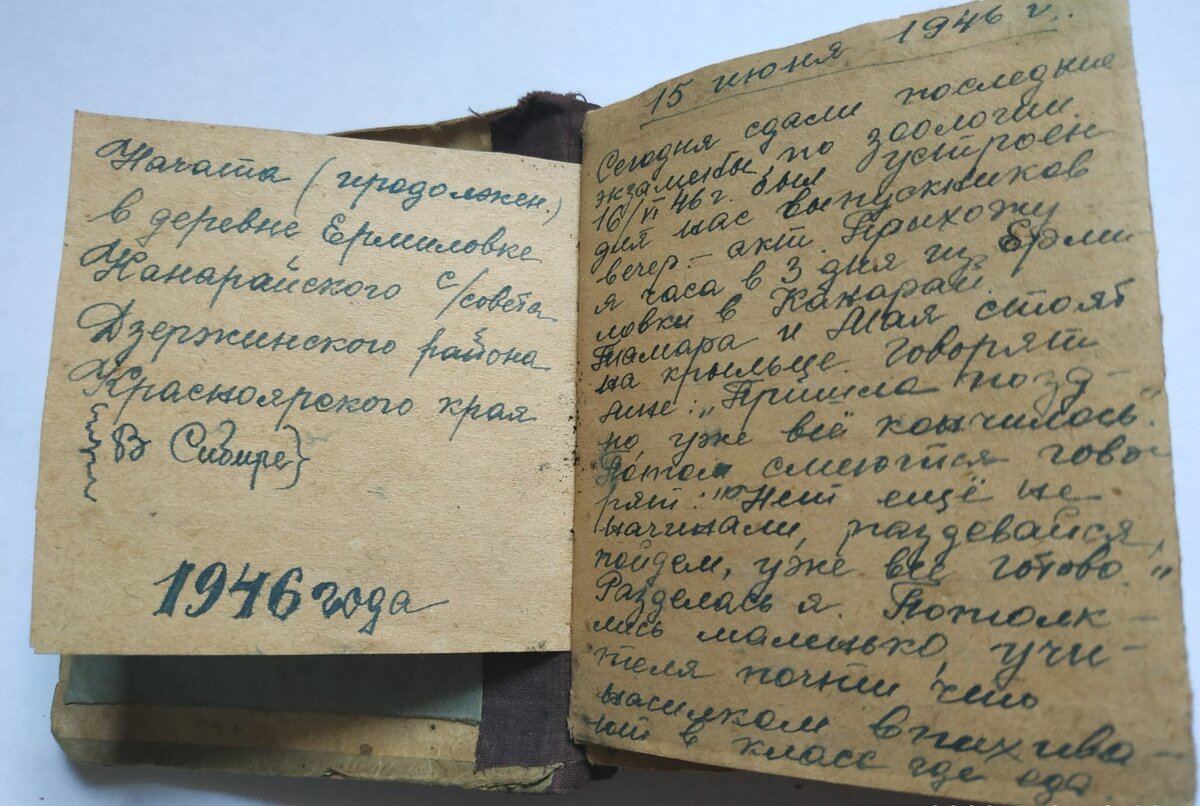 Начата (продолжен.)
в деревне Ермиловке
Канарайского с/совета
Дзержинского района
Красноярского края
{В Сибире}
1946 года
15 июня 1946 г.
Сегодня сдали последние
экзамены по зоологии.
16/VI 46 г. был устроен
для нас выпускников
вечер – акт. Прихожу
я часа в 3 дня из Ерми-
ловки в Канарай.
Тамара и Мая стоят
на крыльце. Говорят
мне: „Пришла позд-
но уже всё кончилось."
Потом смеются гово-
рят: "Нет ещё не
начинали, раздевайся,
пойдем, уже всё готово."
Разделась я. Потолк-
лись маленько, учи-
теля почти что
насилком впихива-
ют в класс где еда